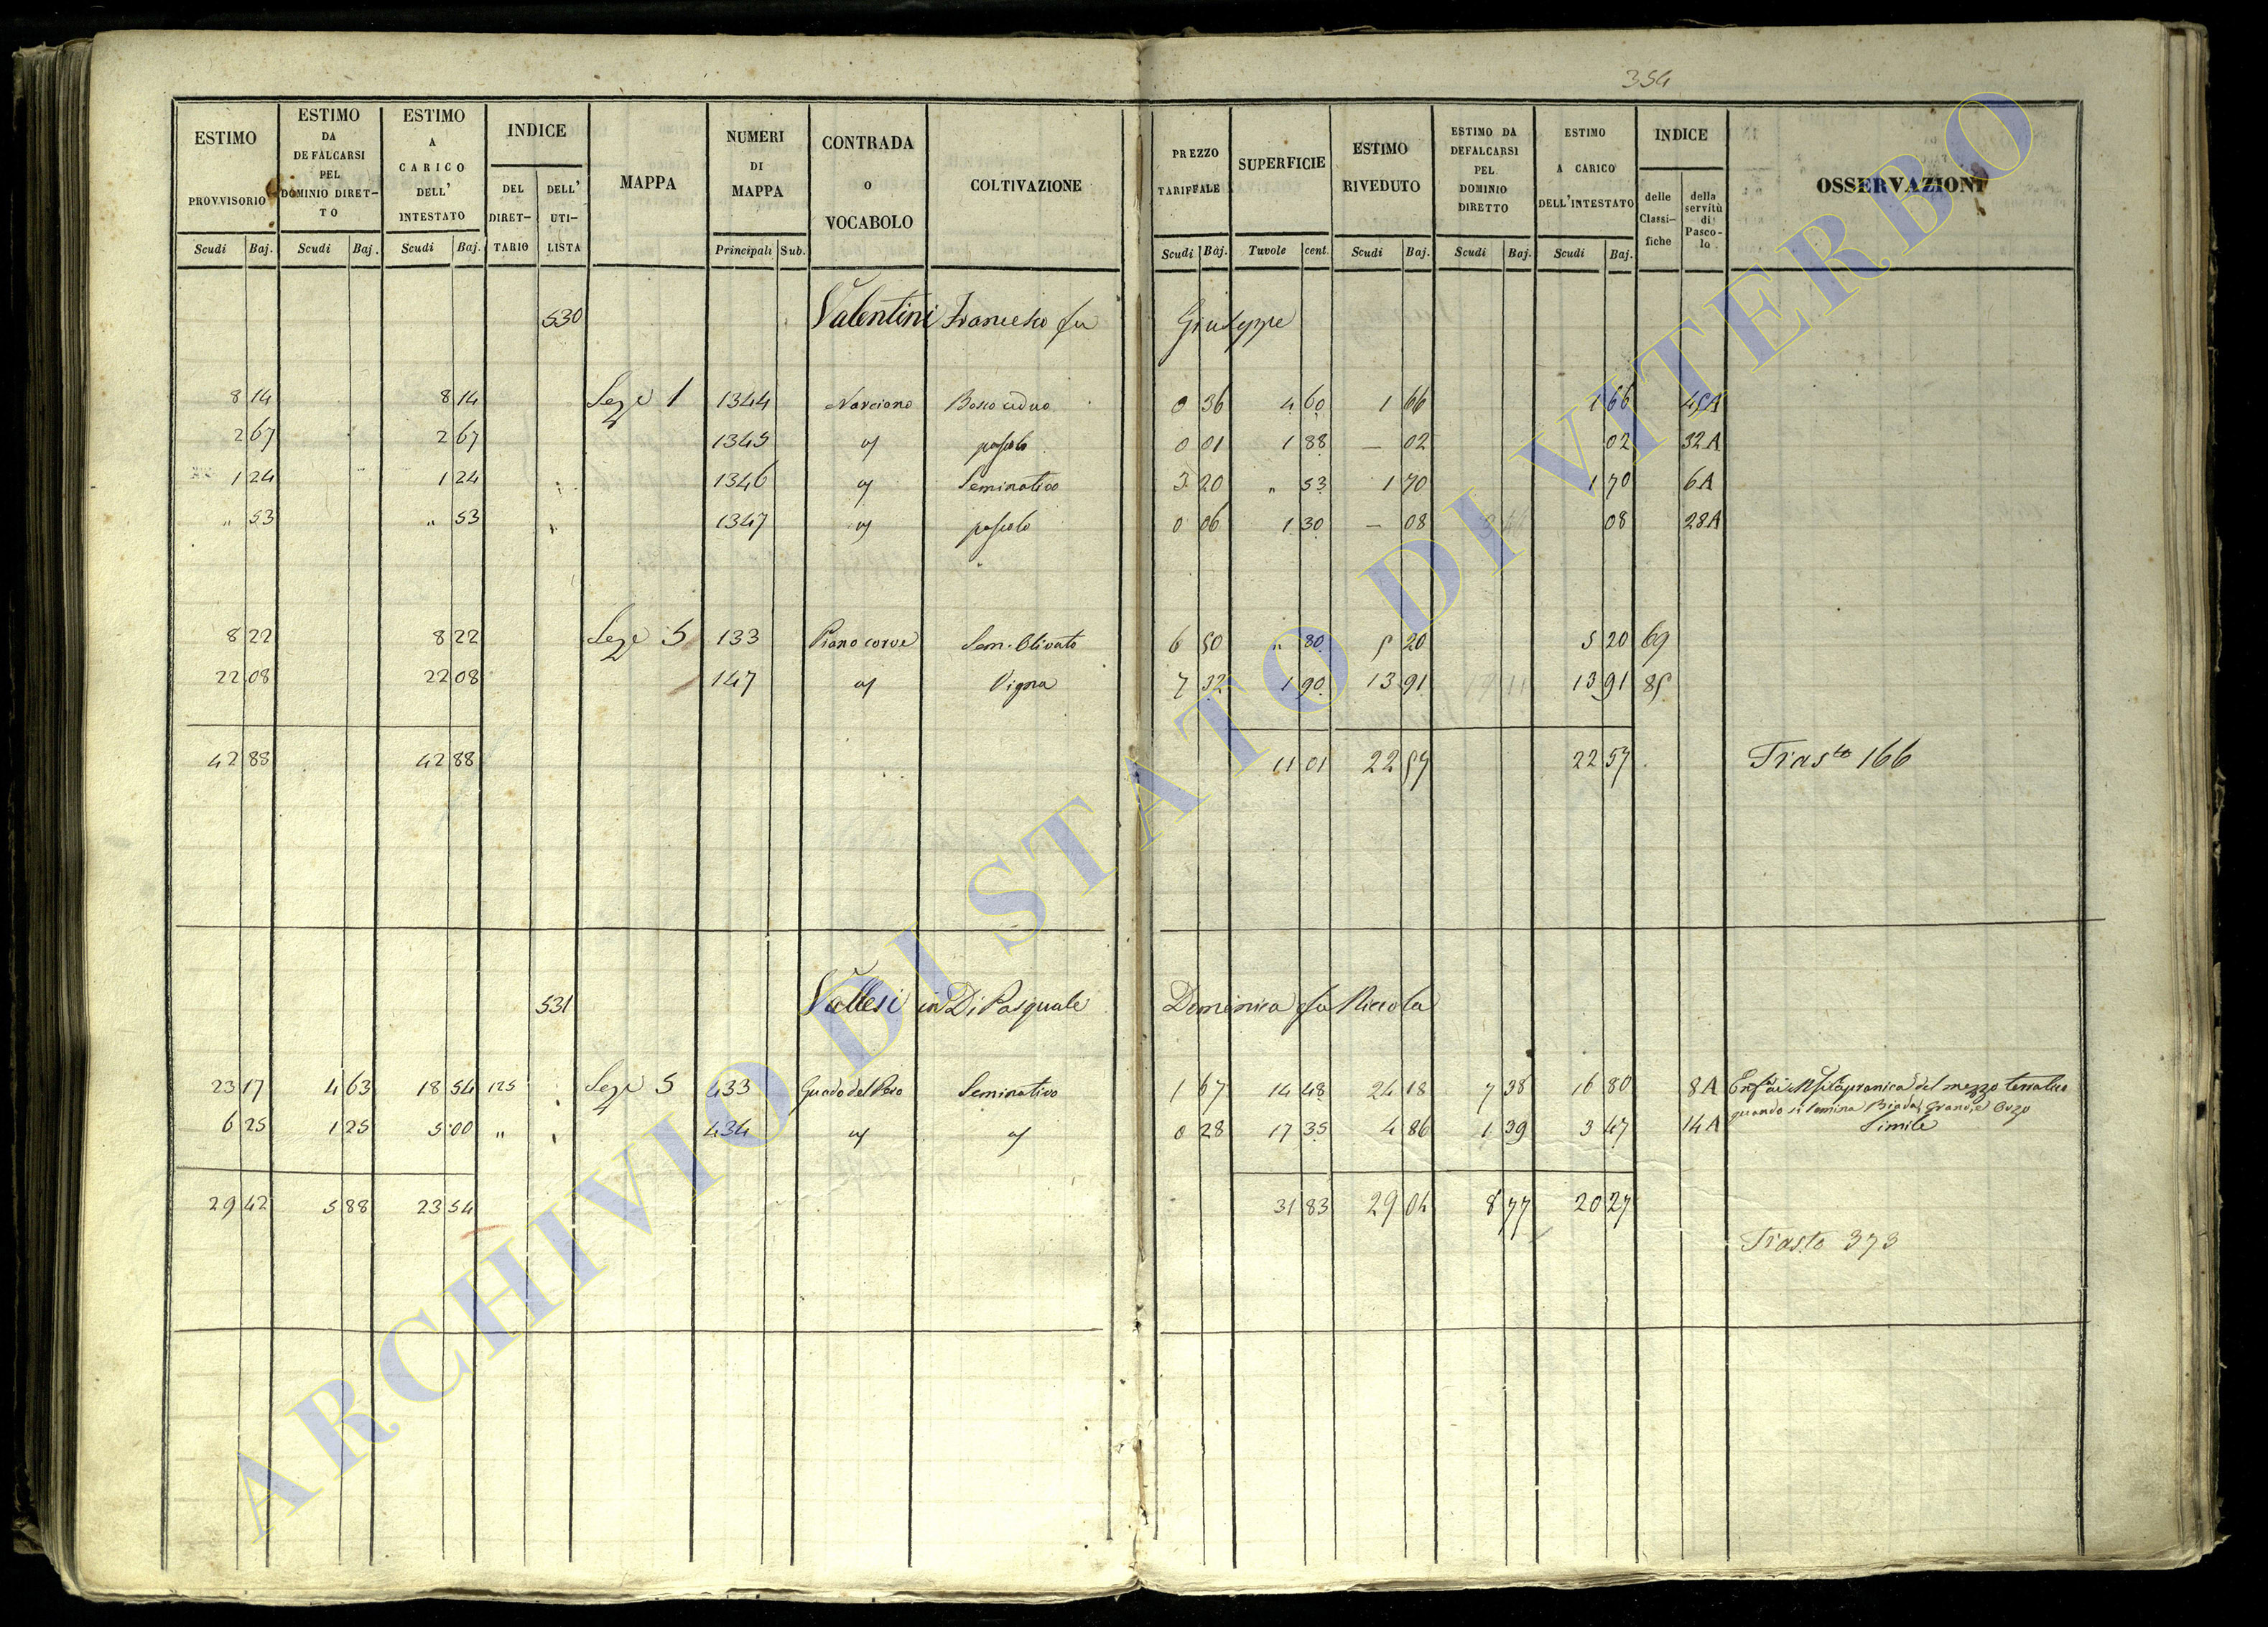 354
ESTIMO PROVVISORIO
ESTIMO DA DEFALCARSI PEL DOMINIO DIRET-TO
ESTIMO A CARICO DELL' INTESTATO
INDICE
DEL DIRET-TARIO
DELL' UTI-LISTA
MAPPA
NUMERI DI MAPPA
CONTRADA O VOCABOLO
COLTIVAZIONE
PREZZO TARIFFALE
SUPERFICIE
ESTIMO RIVEDUTO
ESTIMO DA DEFALCARSI PEL DOMINIO DIRETTO
ESTIMO A CARICO DELL'INTESTATO
INDICE
delle Classi-fiche
della servitù di Pasco-lo
OSSERVAZIONI
Scudi Baj. Scudi Baj. Scudi Baj. Principali Sub. Scudi Baj. Tavole cent. Scudi Baj. Scudi Baj. Scudi Baj.
530 Valentini Francesco fu Giuseppe
8 14 8 14 Seze 1 1344 Narciano Bosco ceduo 0 36 4 60 1 66 1 66 45A
2 67 2 67 1345 " pascolo 0 01 1 88 — 02 02 32A
1 24 1 24 1346 " Seminativo 3 20 " 53 1 70 1 70 6A
" 53 " 53 1347 " pascolo 0 06 1 30 — 08 08 28A
8 22 8 22 Seze 5 133 Piano corve Sem. Olivato 6 50 " 80 5 20 5 20 69
22 08 22 08 147 " Vigna 7 32 1 90 13 91 13 91 85
42 88 42 88 11 01 22 57 22 57 Trasto 166
531 Vallesi in Di Pasquale Domenica fu Niccola
23 17 4 63 18 54 125 Seze 5 433 Guado del Pero Seminativo 1 67 14 48 24 18 7 38 16 80 8A del mezzo terratico
6 25 1 25 5 00 " 434 " " 0 28 17 35 4 86 1 39 3 47 14A quando si semina Biada, Grano, e Orzo
Simile
29 42 5 88 23 54 31 83 29 04 8 77 20 27
Trasto 373
ARCHIVIO DI STATO DI VITERBO